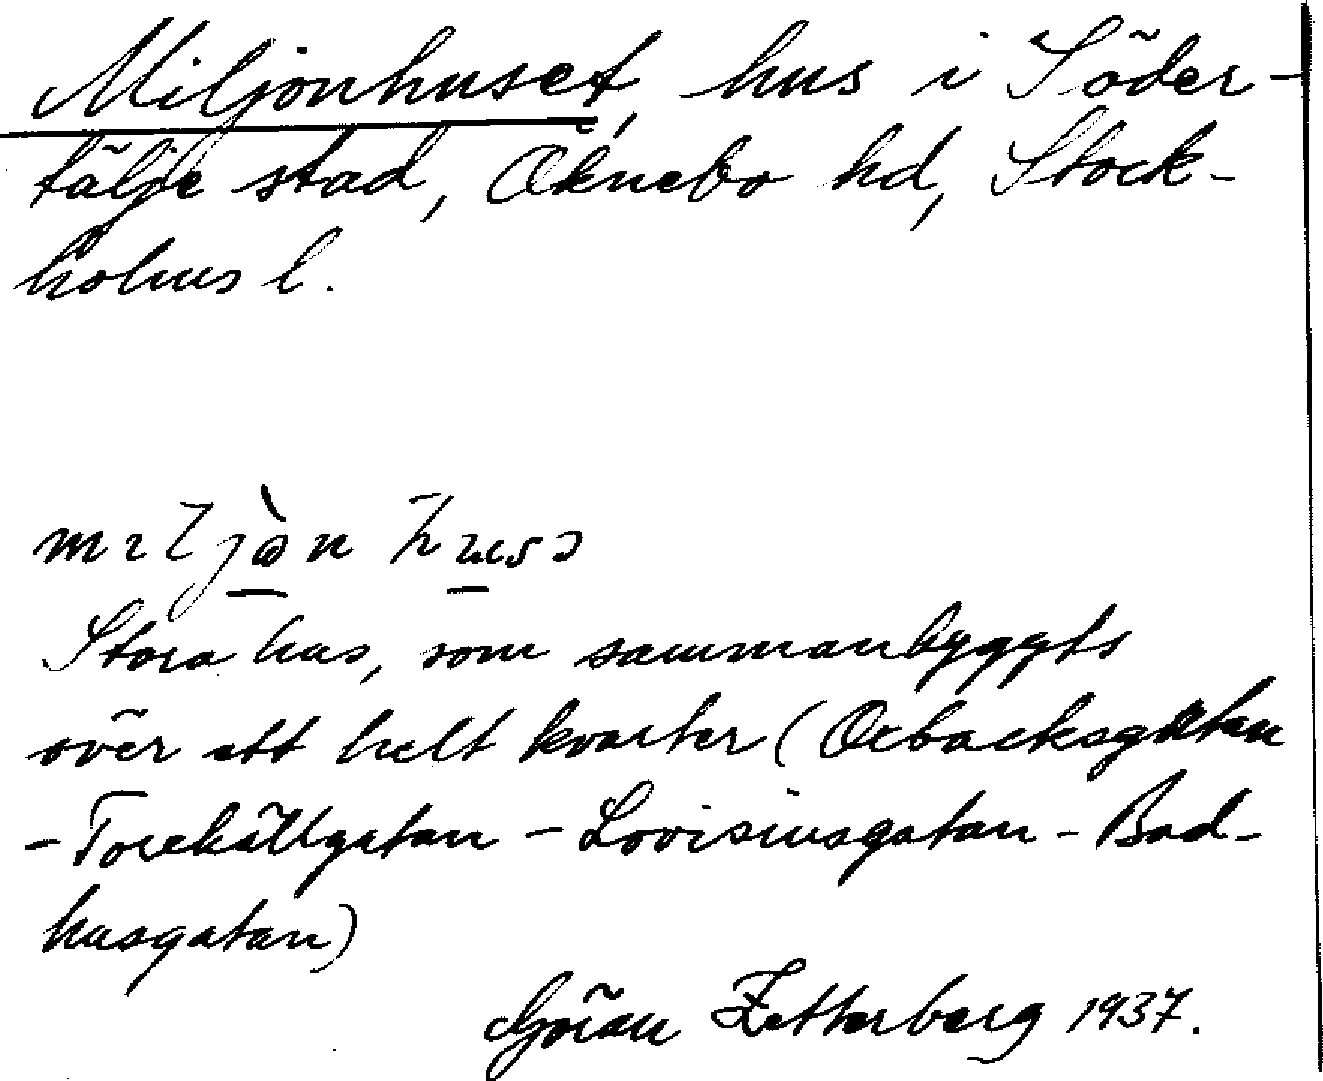 Miljonhuset, hus i Söder-
tälje stad, Öknebo hd, Stock-
holms l.
Stora hus, som sammanbyggts
över ett helt kvarter (Orbacksgatan
- Torekällgatan - Lovisinsgatan - Bad-
husgatan)
Göran Zetterberg 1937.